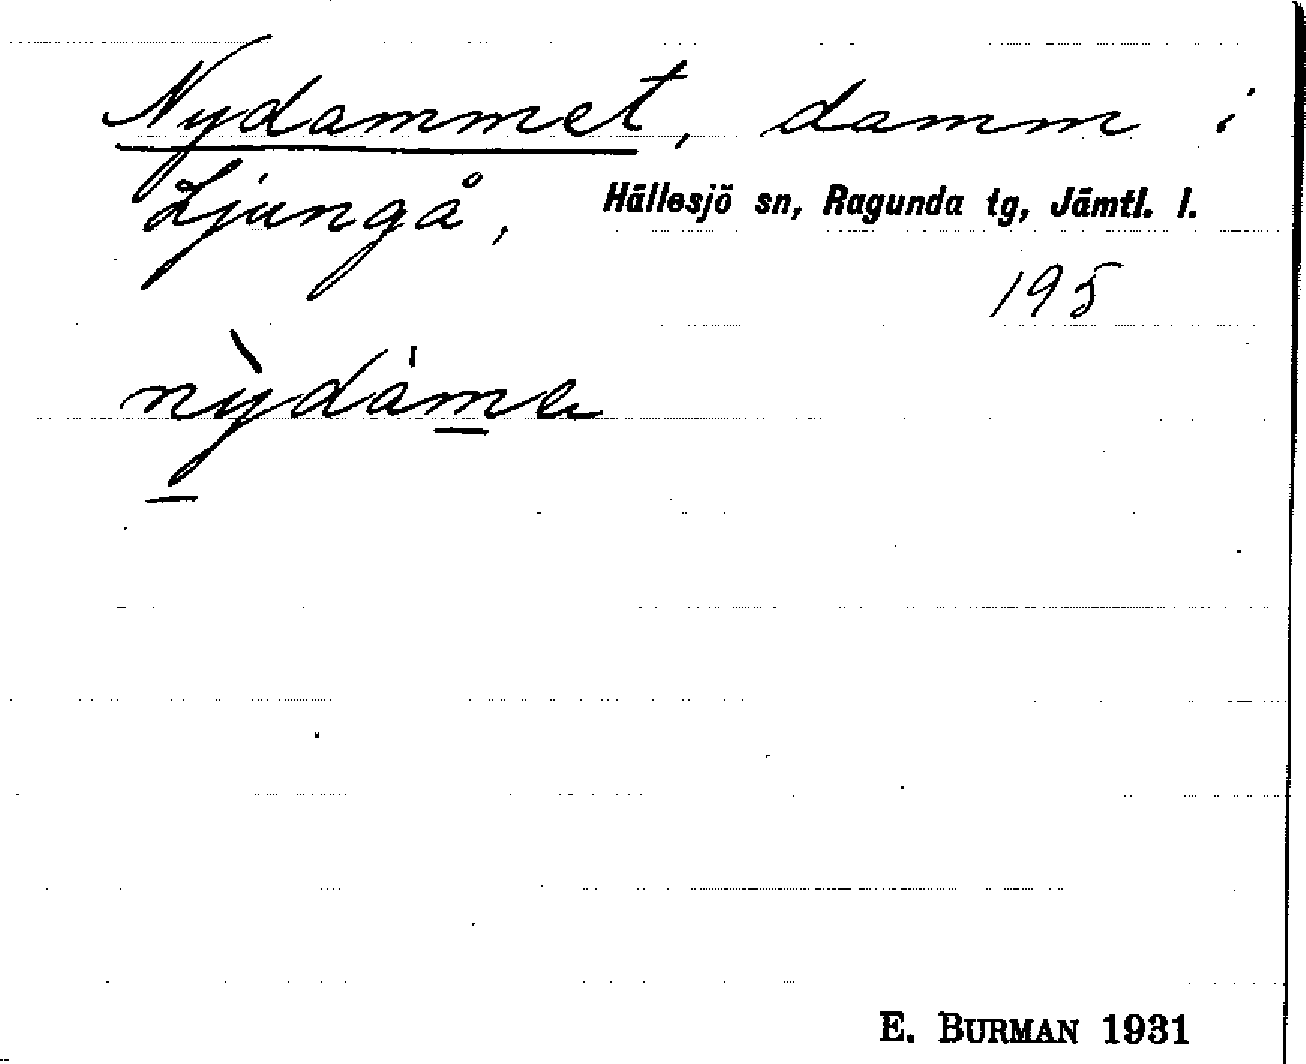 Nydammet, damm i
Ljungå, Hällesjö sn, Ragunda tg, Jämtl. l.
195
nỳdȧma
E. BURMAN 1931